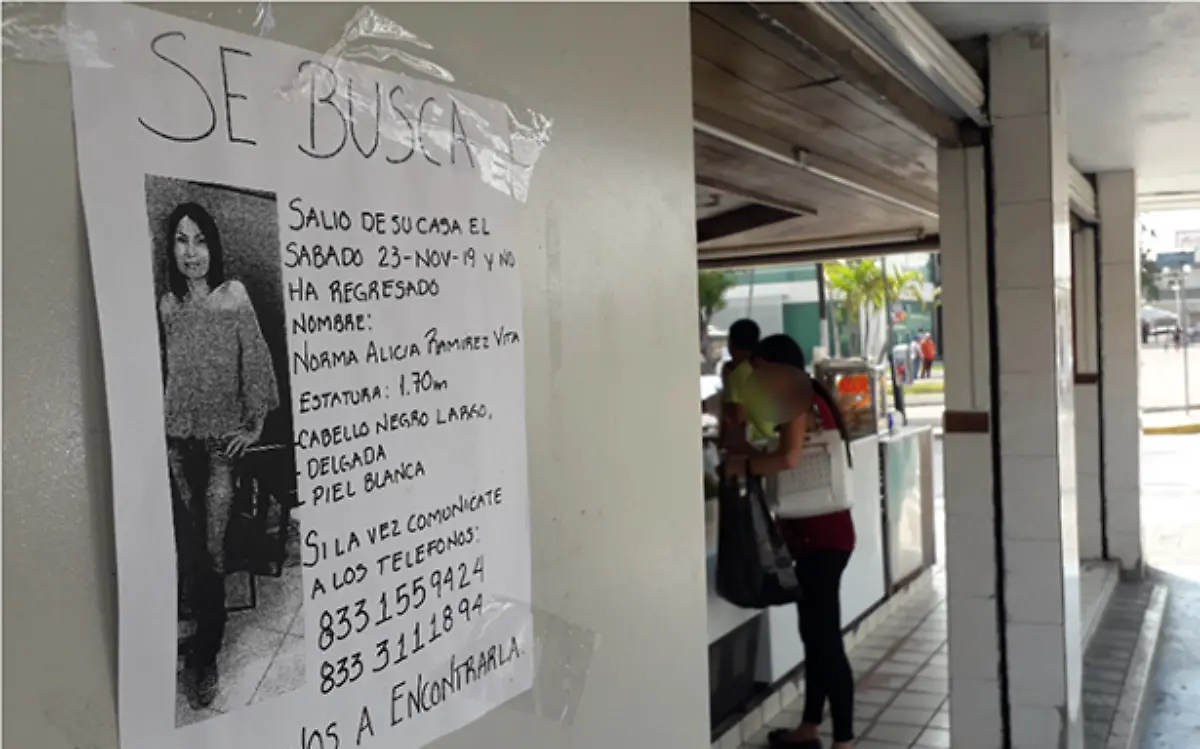 SE BUSCA
SALIO DE SU CASA EL
SABADO 23-NOV-19 Y NO
HA REGRESADO
NOMBRE:
NORMA ALICIA RAMIREZ VITA
ESTATURA: 1.70m
-CABELLO NEGRO LARGO,
- DELGADA
- PIEL BLANCA
SI LA VEZ COMUNICATE
A LOS TELEFONOS:
833 1559424
833 3111894
A ENCONTRARLA.